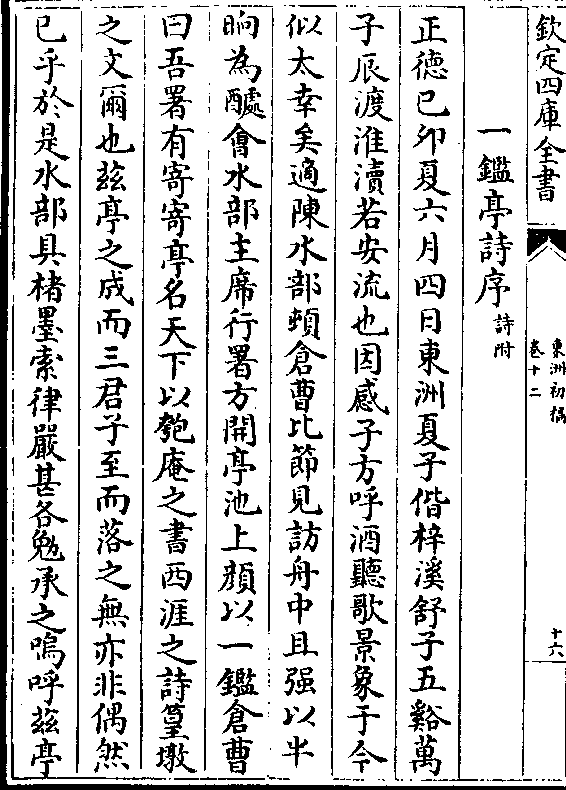 欽定四庫全書
東洲初稿
卷十二
十六
一鑑亭詩序詩附
正德已卯夏六月四日東洲夏子偕梓溪舒子五谿萬
子辰渡淮瀆若安流也因感子方呼酒聽歌景象于今
似太幸矣適陳水部頓倉曹比節見訪舟中且强以半
晌為醵會水部主席行署方開亭池上顔以一鑑倉曹
曰吾署有寄寄亭名天下以匏庵之書西涯之詩篁墩
之文爾也兹亭之成而三君子至而落之無亦非偶然
已乎於是水部具楮墨索律嚴甚各勉承之嗚呼兹亭